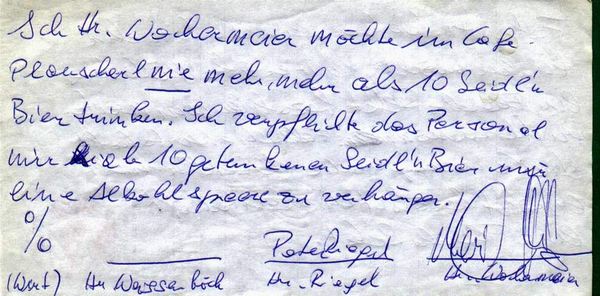 Ich Hr. Wochermaier möchte im Cafe
Plauscherl nie mehr, mehr als 10 Seidl'n
Bier trinken. Ich verpflichte das Personal
mir ab 10 getrunkenen Seidl'n Bier
eine Alkoholsperre zu verhängen.
%
(Wirt) Hr. Hr. Riegel Hr. Wochermaier